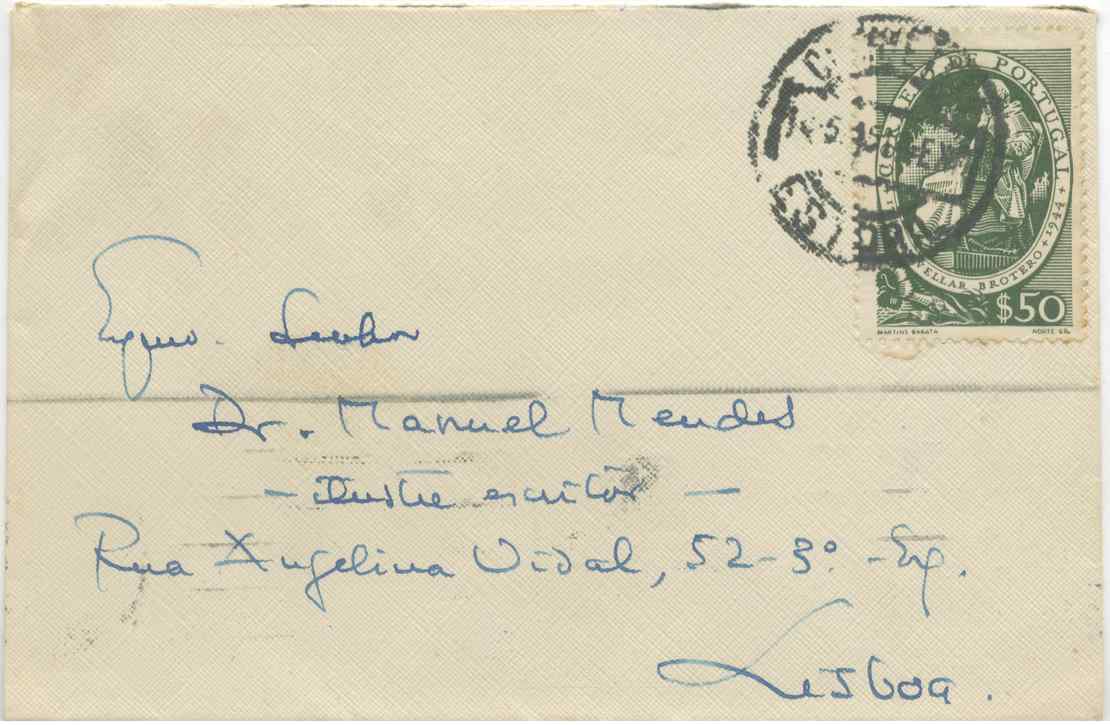 CORREIO DE PORTUGAL + 1944 +
AVELLAR BROTERO
$50
MARTINS BARATA
NORTE GR.
ESTORIL
Exmo. Senhor
Dr. Manuel Mendes
- ilustre escritor -
Rua Angelina Vidal, 52-3º-Eq.
Lisboa.